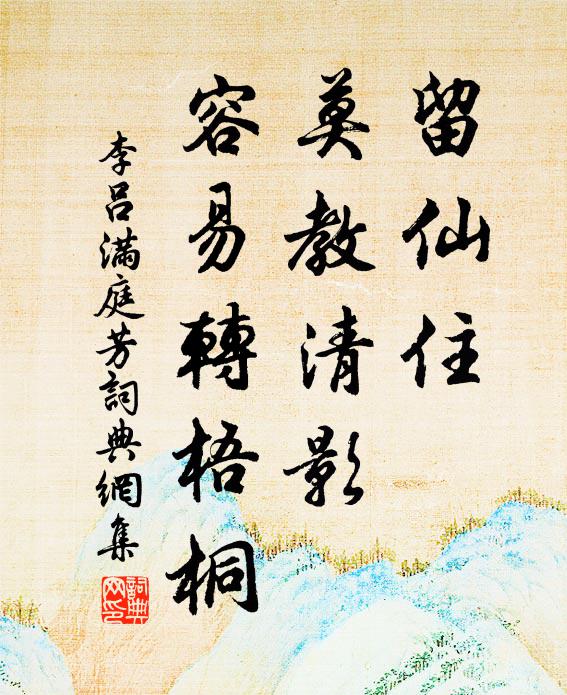 留仙住
莫教清影
容易轉梧桐
李呂滿庭芳詞典網集
詞典网印